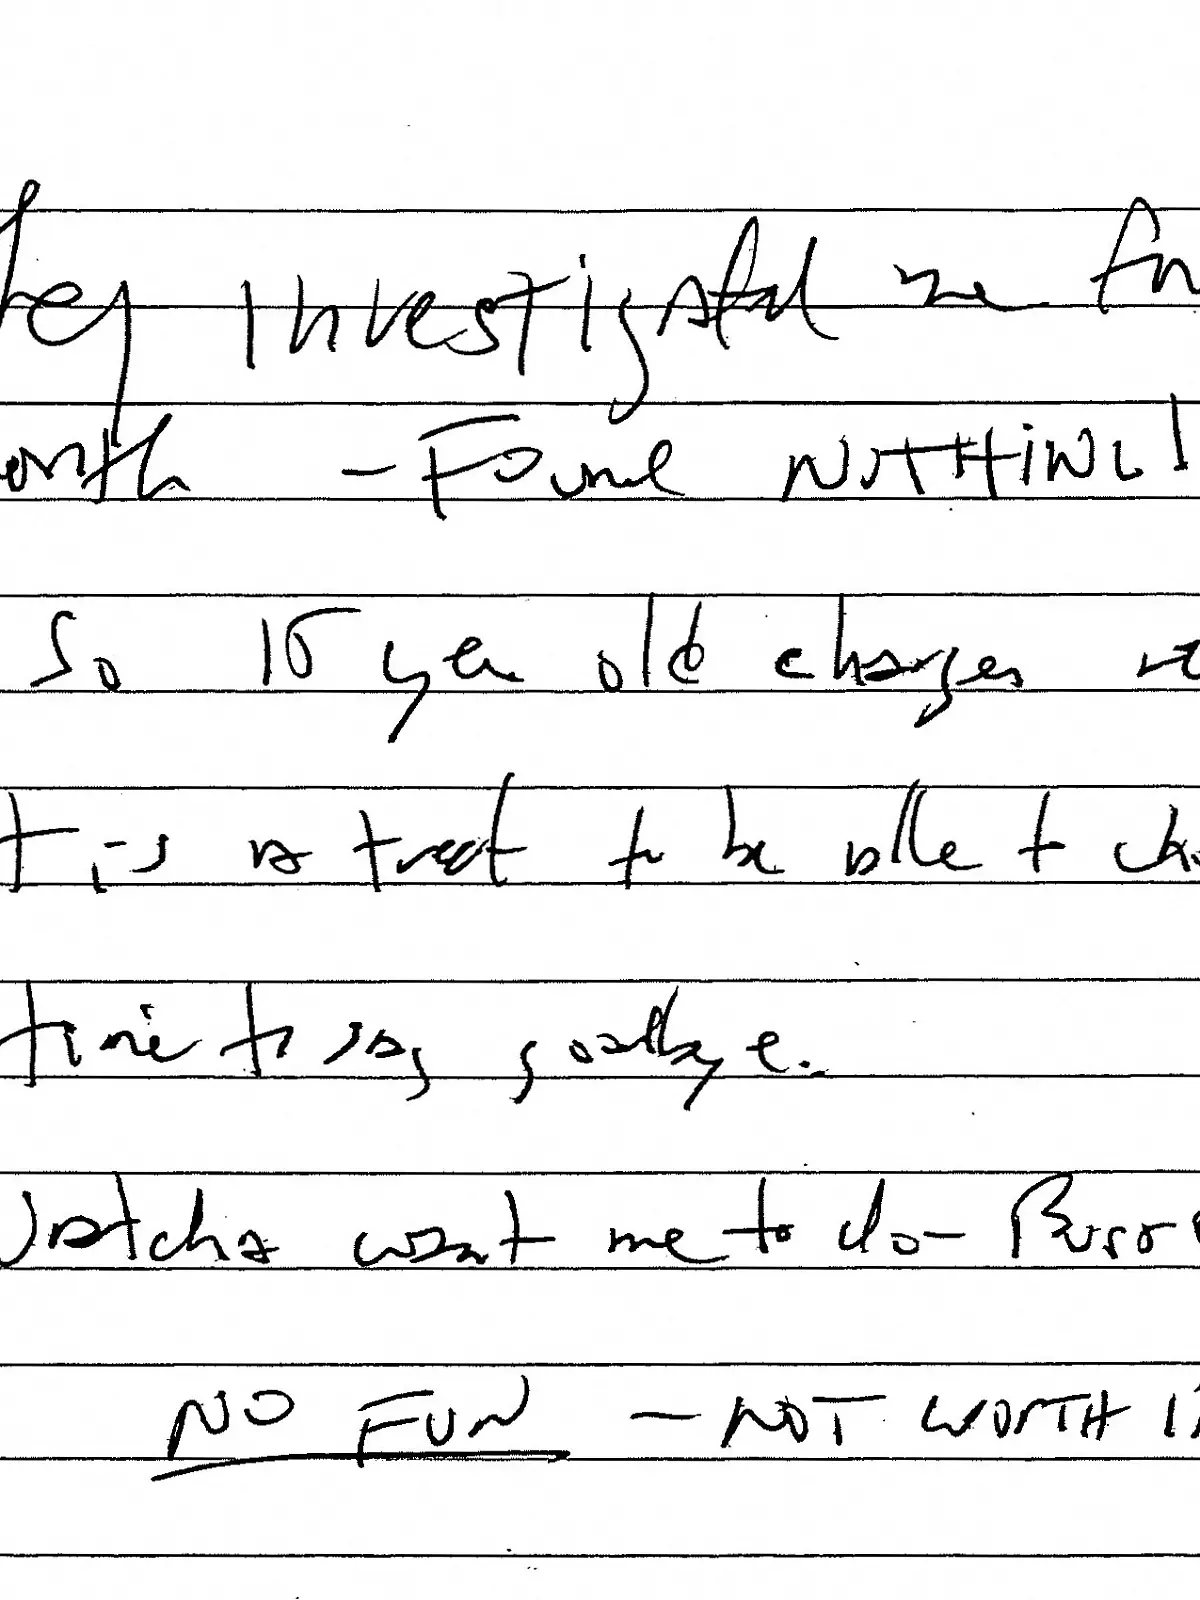 hey investigated me for
onth - Found NOTHING!
So 15 year old charges
t is a treat to be able to cho
time to say goodbye.
Watcha want me to do-
NO FUN - NOT WORTH I